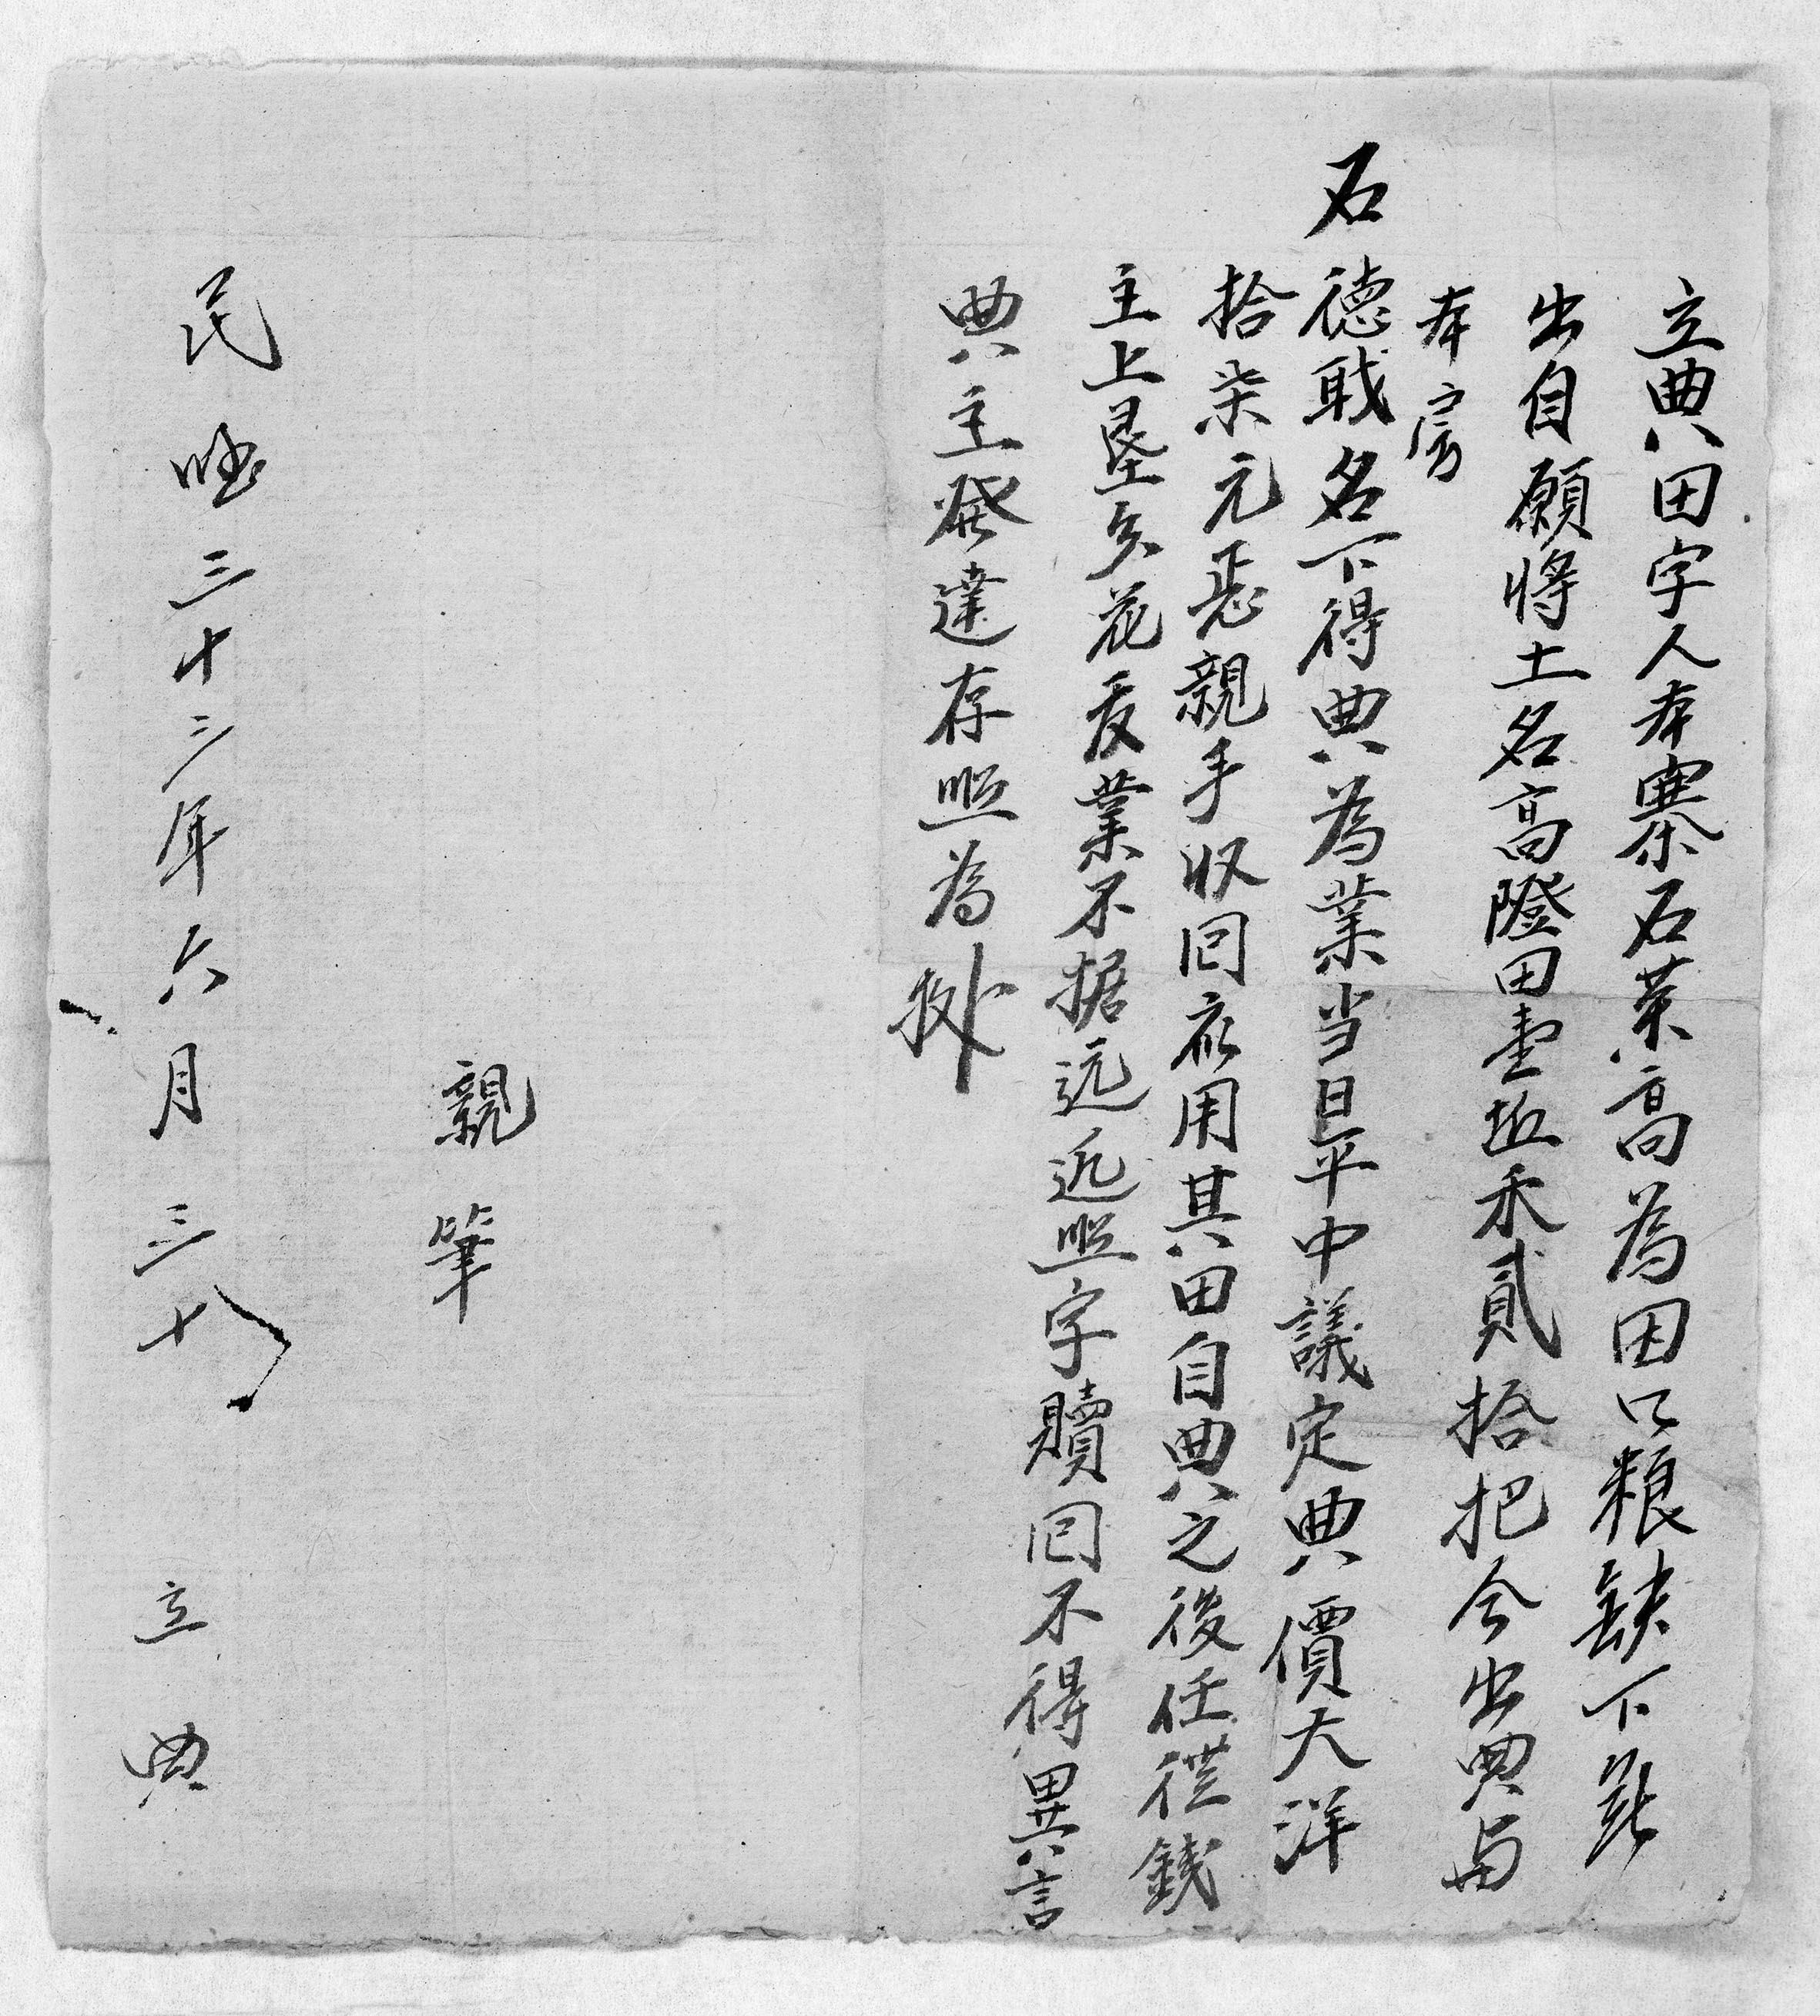 立典田字人本寨石榮高為因口粮缺下無
出自願將土名高隥田壹坵禾貳拾把今出典与
本房
石德戢名下得典為業当日平中議定典價大洋
拾柒元悉親手收回應用其田自典之後任從錢
主上墾矣花受業不据远近照字贖回不得異言
典主發達存照為據
親筆
民國三十三年六月三十 立典